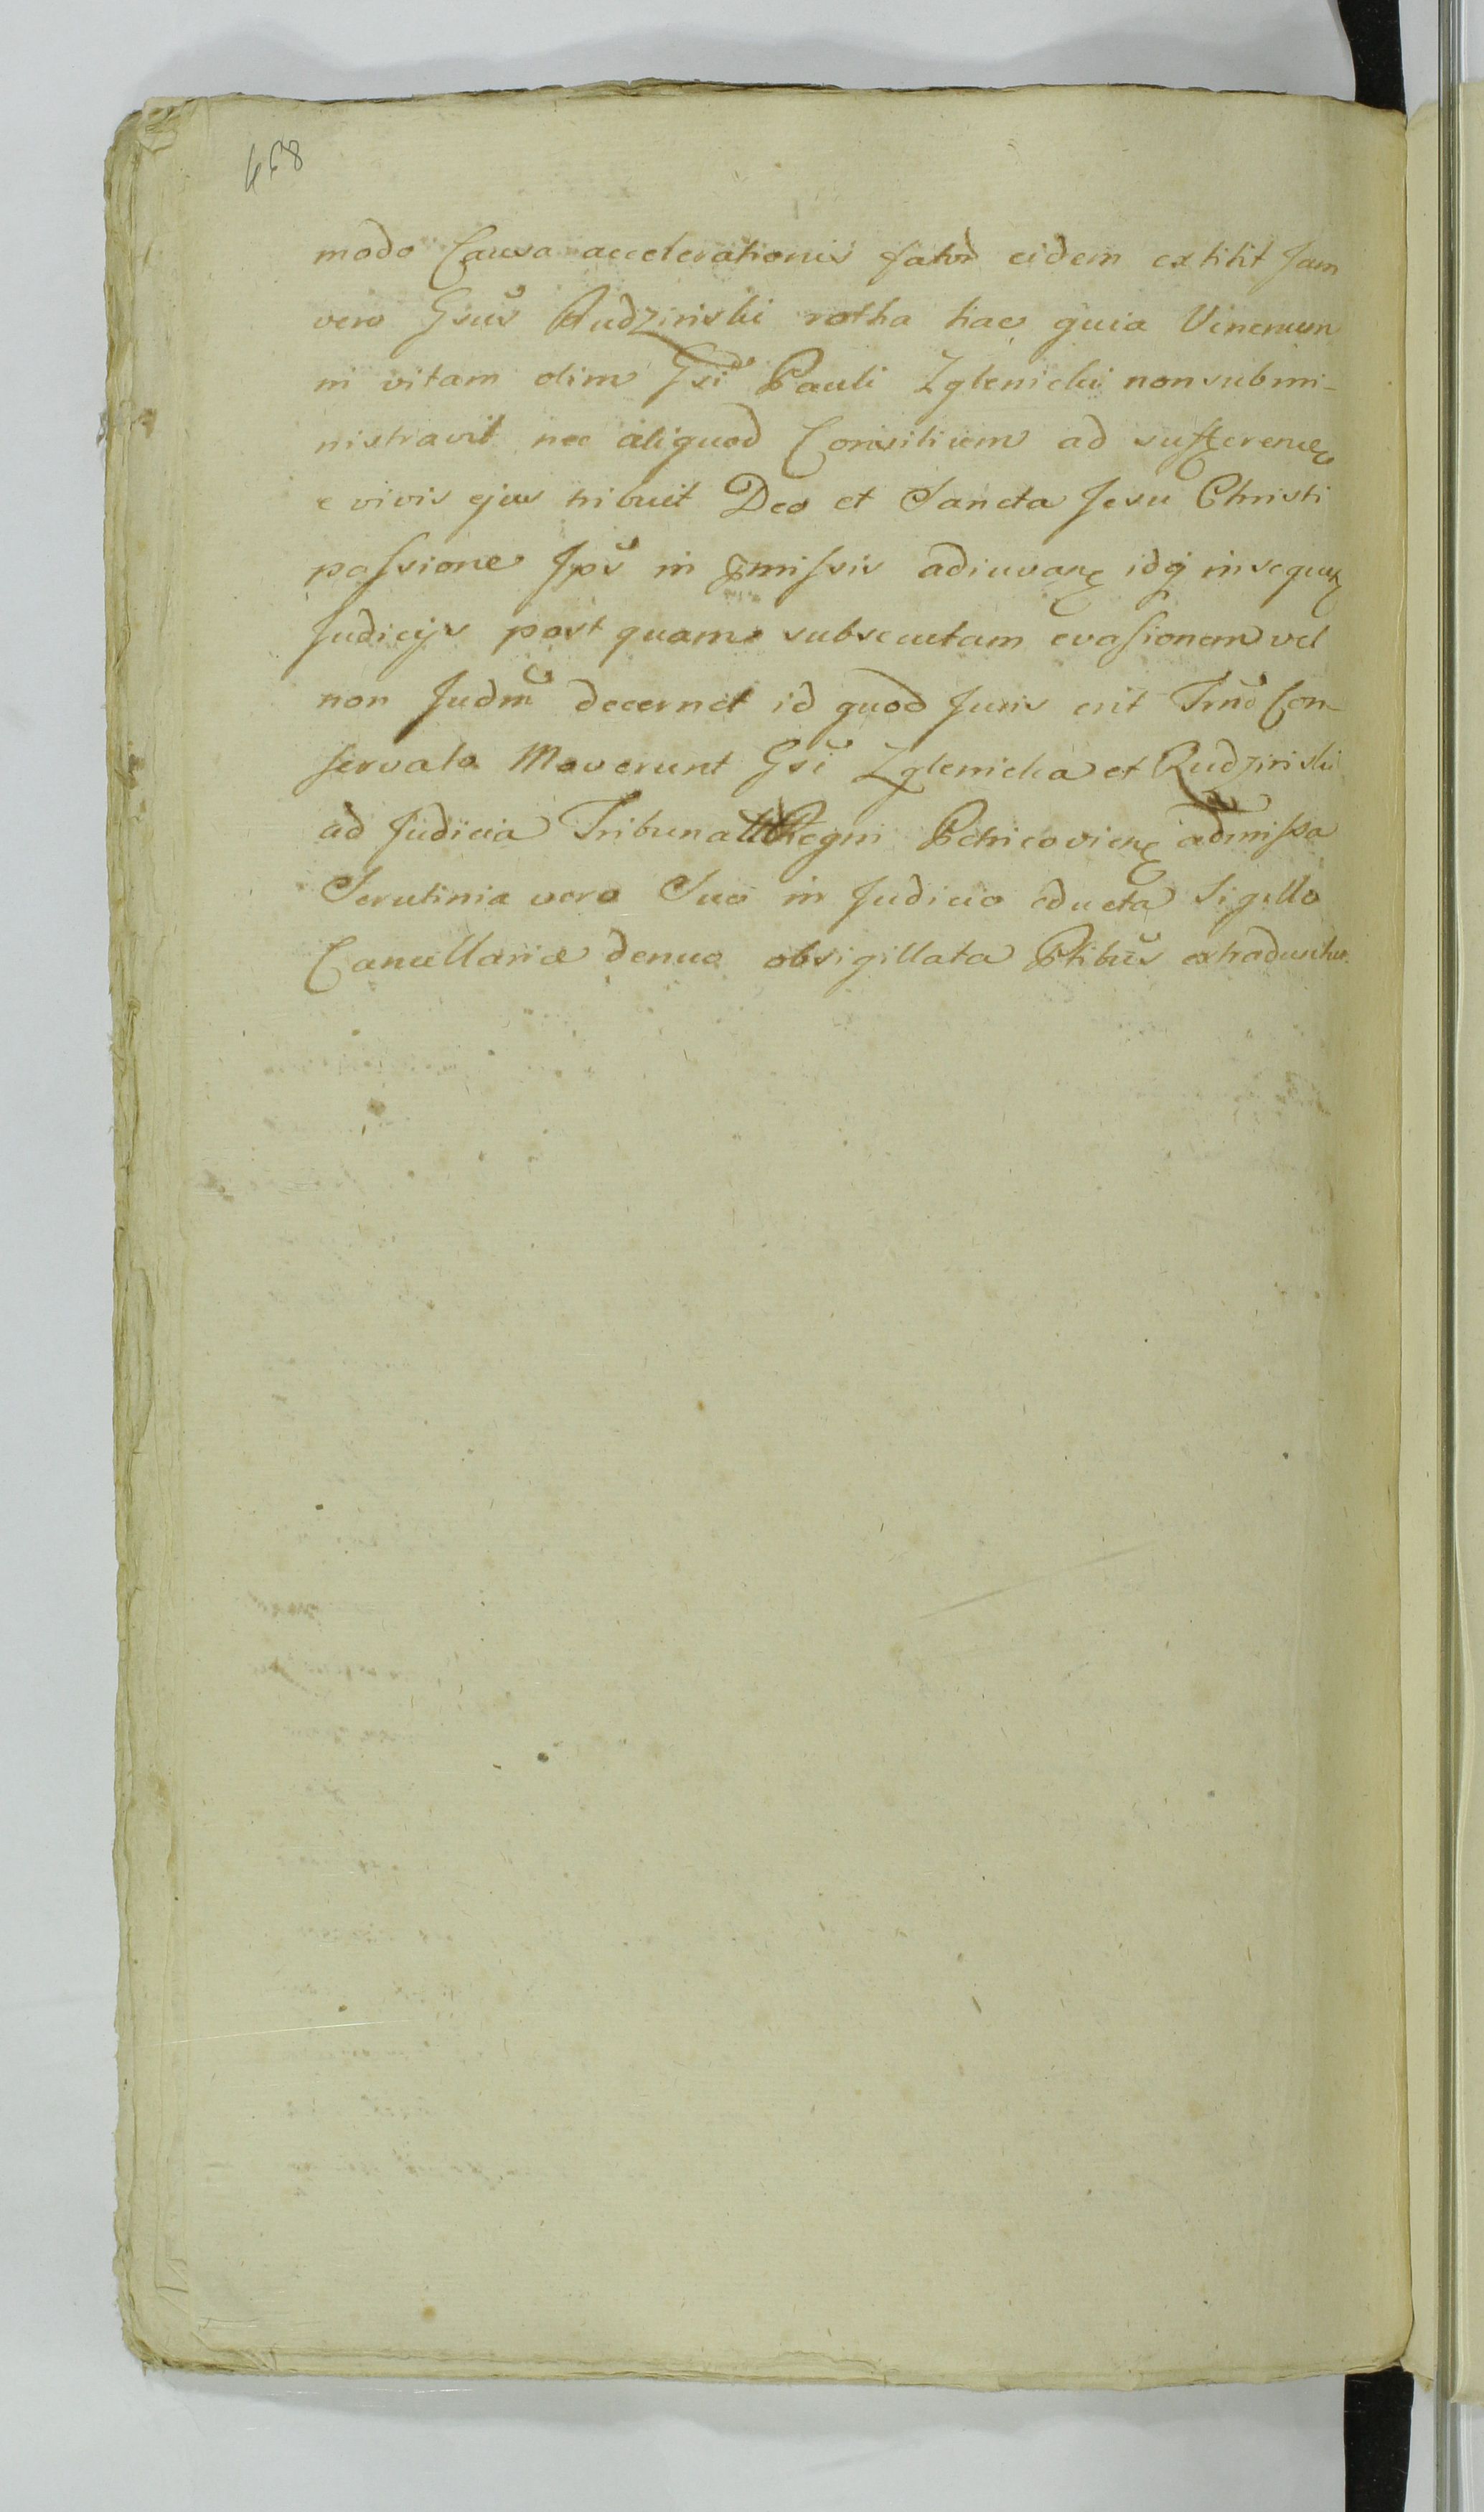 468
modo Causa accelerationis fatoru eidem extitit Jam
vero Gsus Rudzinski rotha hac quia Venenum
in vitam olim Gsi Pauli Zglenicki non submi-
nistravit nec aliquod Consilium ad sufferen
e vivis ejus tribuit Deo et Sancta Jesu Christi
passione Jps in pmissis adiuvan idq in sequen
Judicijs post quam subsecutam evasionem vel
non Judm decernet id quod Juris erit Trno Con-
servato Moverunt Gsi Zglenicka et Rudzinski
ad Judicia Tribunal Regni Petricovien admissa
Scrutinia vero Suo in Judicio educta Sigillo
Cancellariæ denuo obsigillata Ptibus extraduntur.